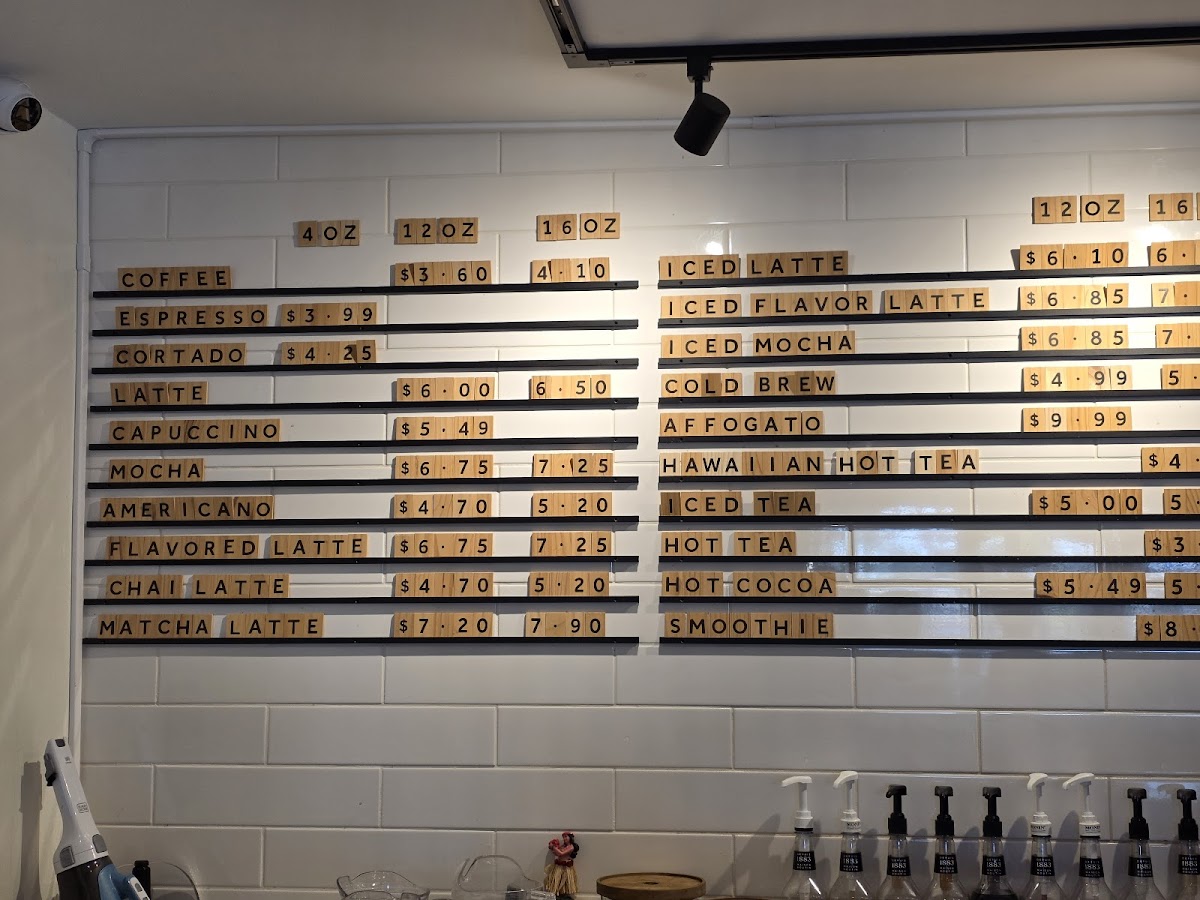 4OZ 12OZ 16OZ
COFFEE $3.60 4.10
ESPRESSO $3.99
CORTADO $4.25
LATTE $6.00 6.50
CAPUCCINO $5.49
MOCHA $6.75 7.25
AMERICANO $4.70 5.20
FLAVORED LATTE $6.75 7.25
CHAI LATTE $4.70 5.20
MATCHA LATTE $7.20 7.90
12OZ 16
ICED LATTE $6.10 6.
ICED FLAVOR LATTE $6.85 7.
ICED MOCHA $6.85 7.
COLD BREW $4.99 5.
AFFOGATO $9.99
HAWAIIAN HOT TEA $4.
ICED TEA $5.00 5.
HOT TEA $3
HOT COCOA $5.49 5.
SMOOTHIE $8.
1883
1883
1883
1883
1883
1883
1883
1883
1883